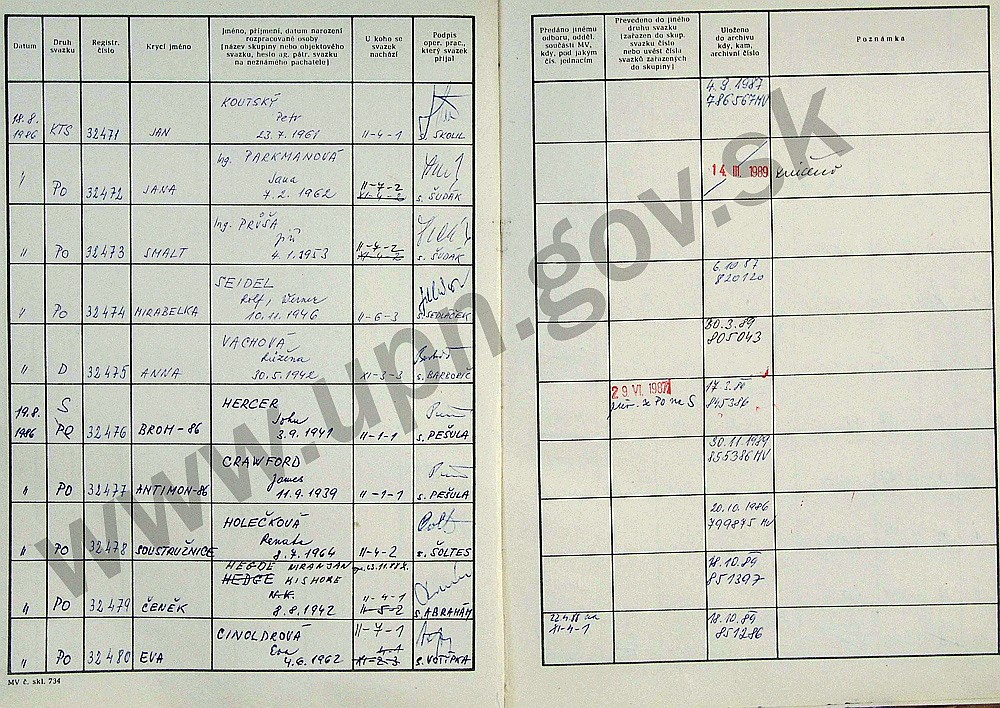 Datum
Druh svazku
Registr. číslo
Krycí jméno
Jméno, příjmení, datum narození
rozpracované osoby
(název skupiny nebo objektového
svazku, heslo sig. pátr. svazku
na neznámého pachatele)
U koho se
svazek
nachází
Podpis
oper. prac.,
který svazek
přijal
Předáno jinému
odboru, odděl.
součásti MV,
kdy, pod jakým
čís. jednacím
Převedeno do jiného
druhu svazku
(zařazen do skup.
svazku číslo
nebo uvést čísla
svazků zařazených
do skupiny)
Uloženo
do archivu
kdy, kam,
archivní číslo
Poznámka
18.8.
1986 KTS 32471 JAN
KOUTSKÝ
Petr
23.7.1961
II-4-1
s. ŠKOLIL
4.9.1987
786567MV
" PO 32472 JANA
Ing. PARKMANOVÁ
Jana
7.2.1962
II-7-2
XI-4-2
s. ŠUDÁK
14. III. 1989
zničeno
" PO 32473 SMALT
Ing. PRŮŠA
Jiří
4.1.1953
II-7-2
XI-4-2
s. ŠUDÁK
" PO 32474 MIRABELKA
SEIDEL
Rolf, Werner
10.11.1946
II-6-3
s. SEDLÁČEK
6.10.87
820120
" D 32475 ANNA
VACHOVÁ
Růžena
30.5.1942
XI-3-3
s. BARBORIČ
20.3.89
805043
19.8.
1986 S
PO 32476 BROM-86
HERCER
John
3.9.1941
II-1-1
s. PEŠULA
29. VI. 1987
přev. z PO na S
845386
" PO 32477 ANTIMON-86
CRAWFORD
James
11.9.1939
II-1-1
s. PEŠULA
30.11.1989
855386MV
" PO 32478 SOUSTRUŽNICE
HOLEČKOVÁ
Renata
8.7.1964
II-4-2
s. ŠOLTES
20.10.1986
799875 MV
" PO 32479 ČENĚK
HEGDE NIRANJAN
HEDGE KISHORE
N.K.
8.8.1942
II-4-1
II-5-2
s. ABRAHÁM
18.10.89
851397
" PO 32480 EVA
CINOLDROVÁ
Eva
4.6.1962
II-7-1
4-1
XI-2-3
s. VOTÍPKA
22.4.88 na
XI-4-1
18.10.89
851286
MV č. skl. 734
www.upn.gov.sk